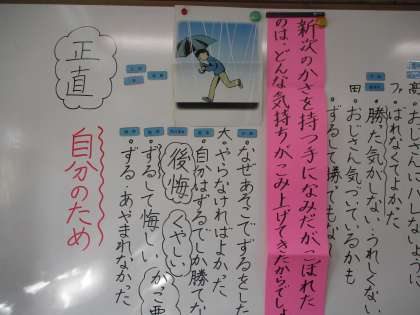 高・おじさんに
・ばれなくてよかった
・勝った気がしない・うれしくない
田・おじさん気づいているかも
・ずるして勝ってもな
新次のかさを持つ手になみだがこぼれた
のは、どんな気持ちがこみ上げてきたからでしょ
・なぜあそこでずるをした
大・やらなければよかった
・自分はずるでしか勝てな
後悔 くやしい
・ずるして悔しい
・ずる・あやまれなかった
正直
自分のため